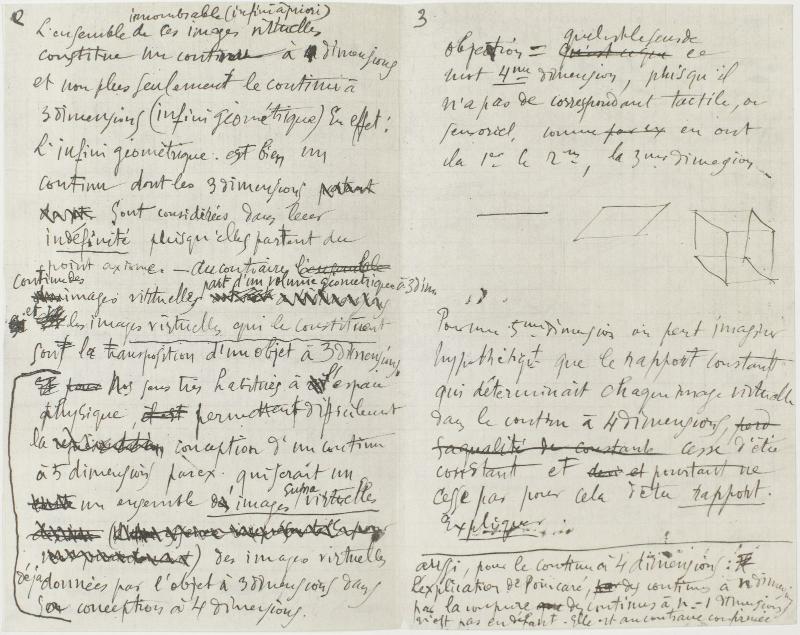 2
innombrable (infini a priori)
L'ensemble de ces images virtuelles
constitue un continu à 4 dimensions
et non plus seulement le continu à
3 dimensions (infini géométrique) En effet :
L'infini géométrique. est bien un
continu dont les 3 dimensions partant
sont considérées dans leur
indéfinité puisqu'elles partent du
point axiome. — au contraire l'ensemble
continu des
images virtuelles part d'un volume géometrique à 3 dim
et les images virtuelles qui le constituent
sont la transposition d'un objet à 3 dimensions
Nos sens très habitués à l'espace
physique, permettent difficilement
la conception d'un continu
à 5 dimensions par ex. qui serait un
un ensemble d'images supra virtuelles
des images virtuelles
déjà données par l'objet à 3 dimensions dans
sa conception à 4 dimensions.
3
objection = quel est le sens de
qu'est ce que ce
mot 4me dimension, puisqu'il
n'a pas de correspondant tactile, ou
sensoriel, comme par ex en ont
la 1re la 2me, la 3me dimension
Pour une 5me dimension on peut imaginer
hypothétiqt que le rapport constant
qui déterminait chaque image virtuelle
dans le continu à 4 dimensions, perd
sa qualité de constante cesse d'être
constant et pourtant ne
cesse pas pour cela d'être rapport.
Expliquer
ainsi, pour le continu à 4 dimensions :
l'explication de Poincaré, des continus à n dimensions
par la coupure des continus à n-1 dimensions
n'est pas en défaut. Elle est au contraire confirmée